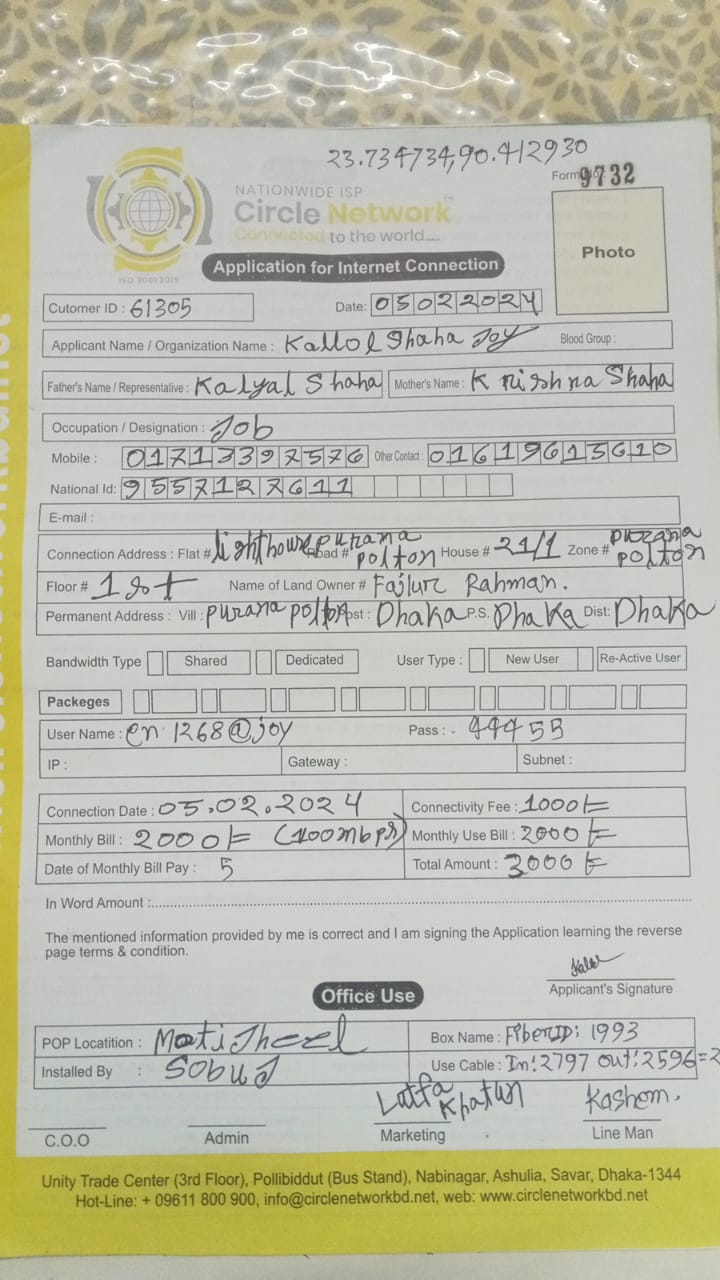 23.734734,90.412930
Form No. 9732
NATIONWIDE ISP
Circle Network™
Connected to the world.....
ISO 9001:2015
Photo
Application for Internet Connection
Cutomer ID : 61305 Date: 05022024
Applicant Name / Organization Name : Kallol Shaha Joy Blood Group :
Father's Name / Representative : Kalyal Shaha Mother's Name : Krishna Shaha
Occupation / Designation : Job
Mobile : 01713397576 Other Contact : 01619615610
National Id: 9557127611
E-mail :
Connection Address : Flat # lighthouse Road # purana polton House # 21/1 Zone # purana polton
Floor # 1st Name of Land Owner # Fajlur Rahman.
Permanent Address : Vill : purana polton Post : Dhaka P.S. Dhaka Dist: Dhaka
Bandwidth Type Shared Dedicated User Type : New User Re-Active User
Packeges
User Name : en 1268@joy Pass : - 44455
IP : Gateway : Subnet :
Connection Date : 05.02.2024 Connectivity Fee : 1000/=
Monthly Bill : 2000/= (100mbps) Monthly Use Bill : 2000/=
Date of Monthly Bill Pay : 5 Total Amount : 3000/=
In Word Amount :
The mentioned information provided by me is correct and I am signing the Application learning the reverse
page terms & condition.
Applicant's Signature
Office Use
POP Locatition : MotiJheel Box Name : FiberID: 1993
Installed By : SobuJ Use Cable : In:2797 out:2596=2
Lutfa Khatun Kashem.
C.O.O Admin Marketing Line Man
Unity Trade Center (3rd Floor), Pollibiddut (Bus Stand), Nabinagar, Ashulia, Savar, Dhaka-1344
Hot-Line: + 09611 800 900, info@circlenetworkbd.net, web: www.circlenetworkbd.net